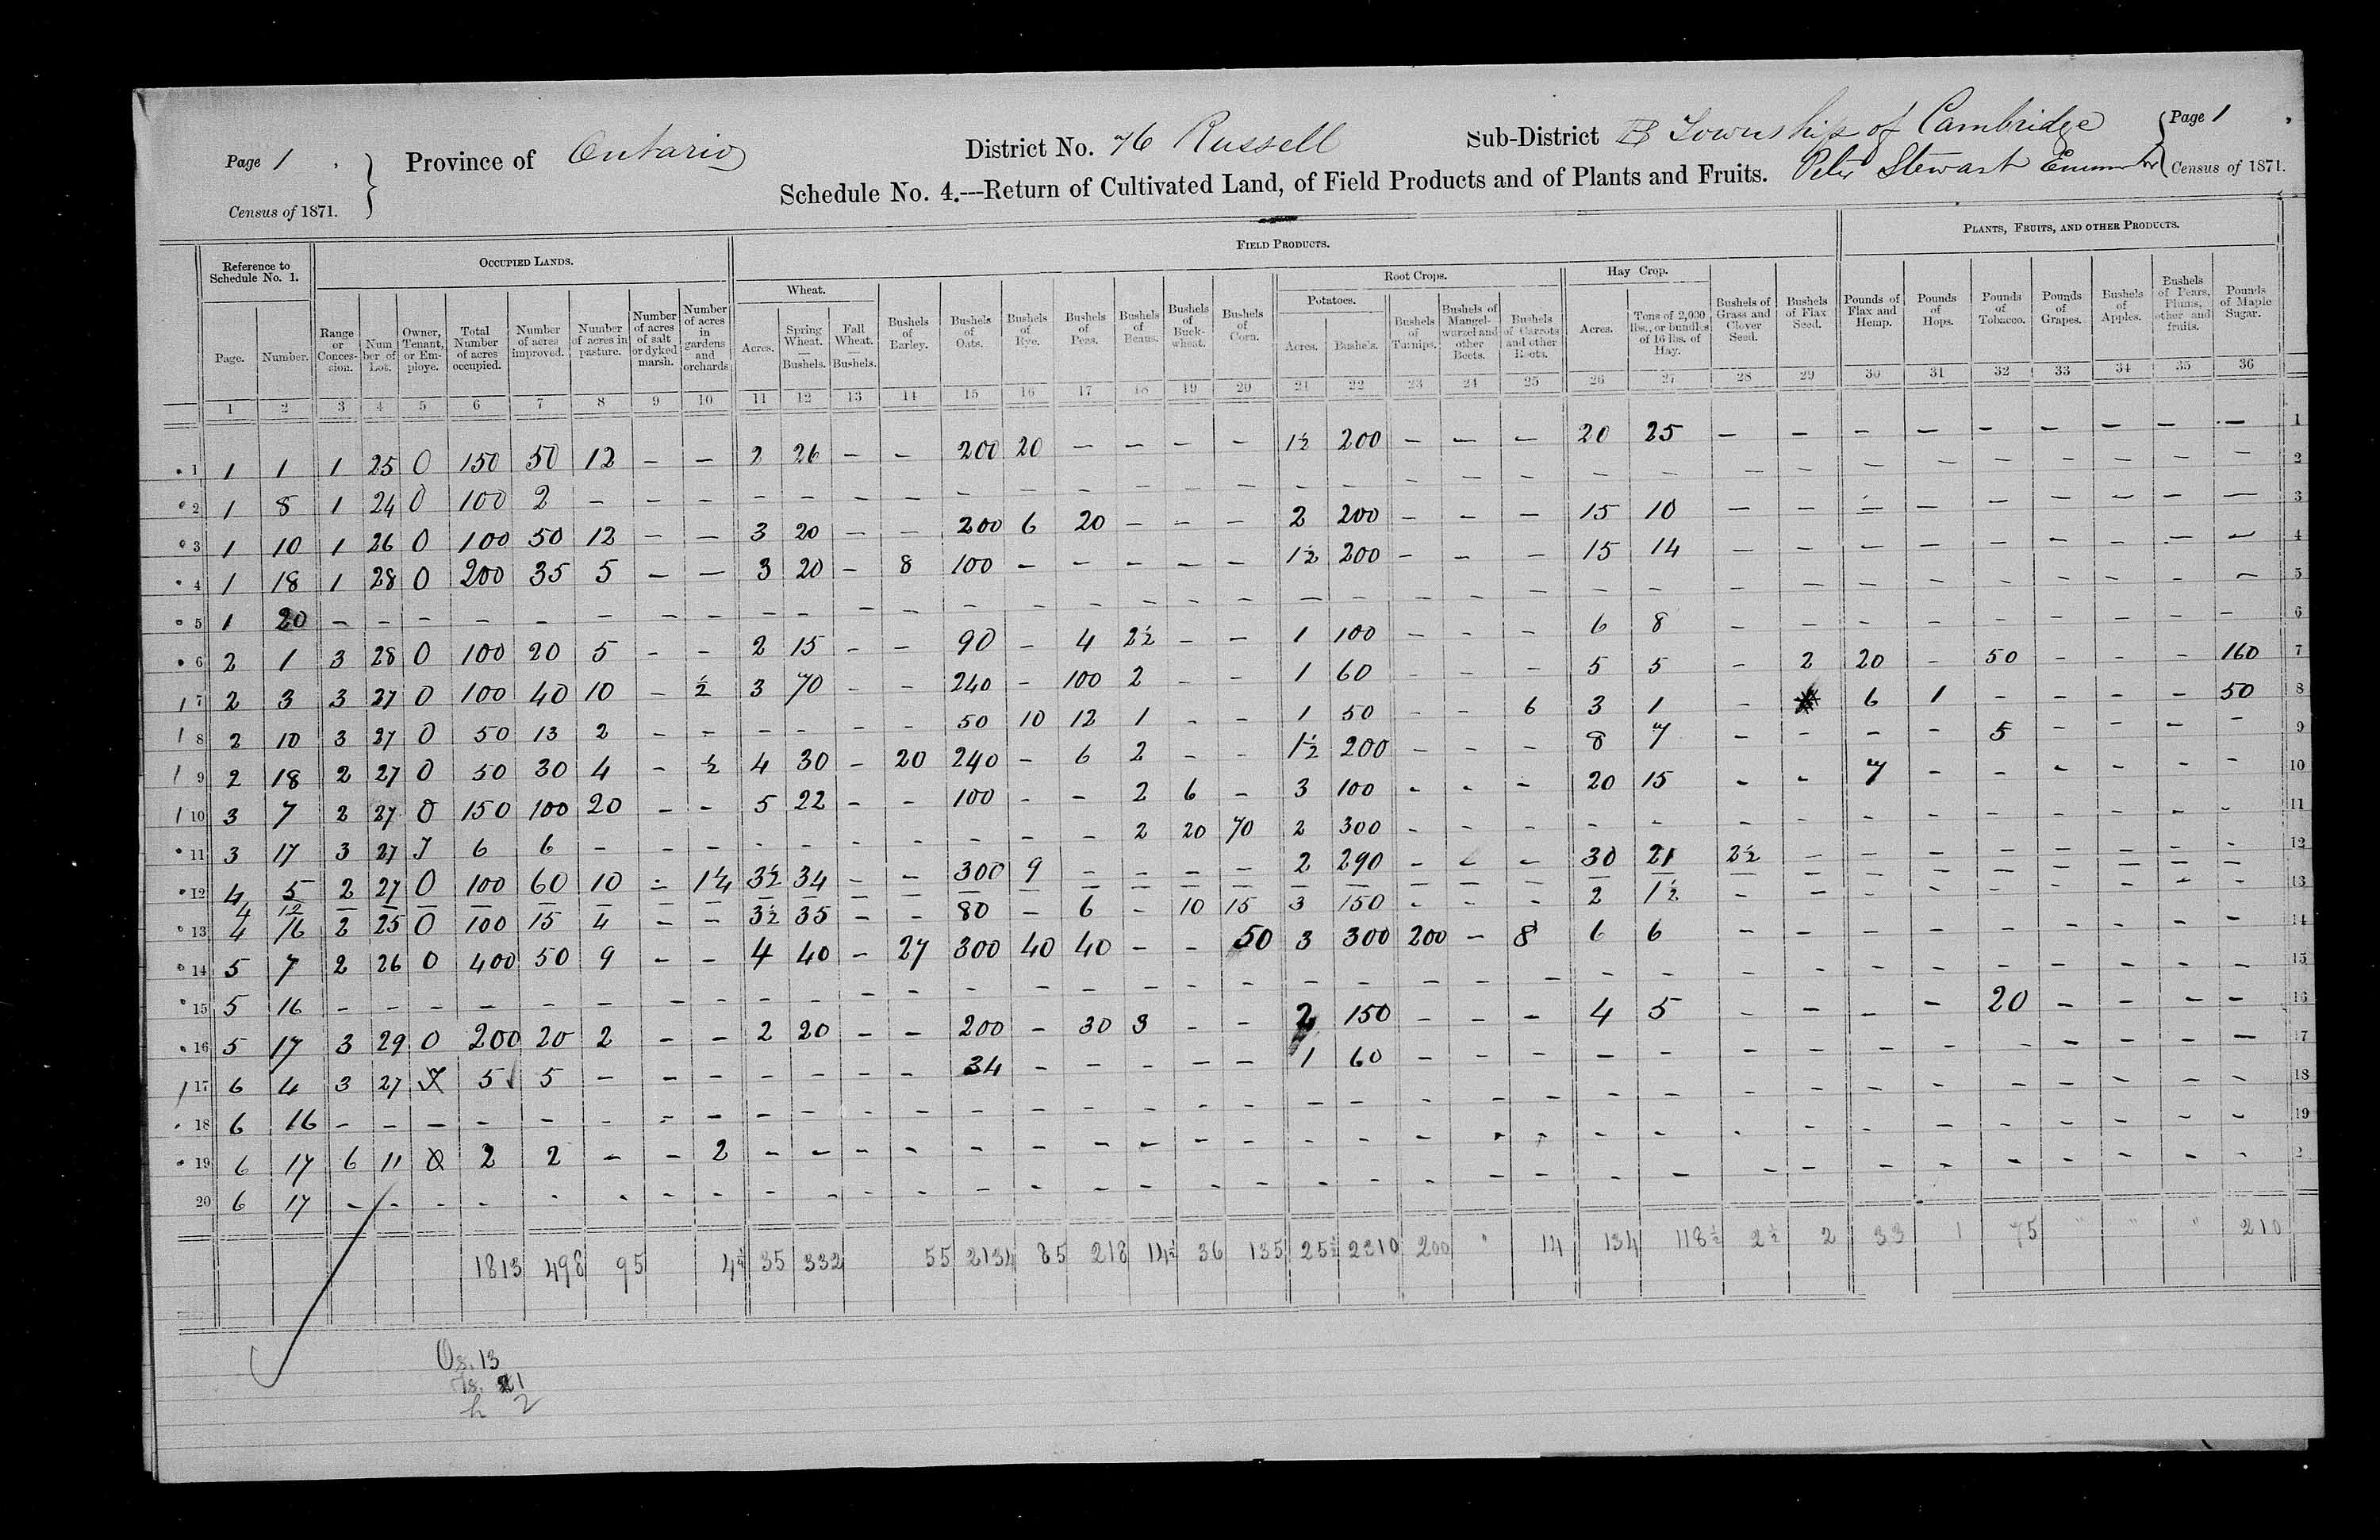 Page 1 Province of Ontario District No. 76 Russell Sub-District B Township of Cambridge Page 1
Census of 1871. Schedule No. 4.---Return of Cultivated Land, of Field Products and of Plants and Fruits. Peter Stewart Census of 1871.
Reference to Schedule No. 1. OCCUPIED LANDS. FIELD PRODUCTS. PLANTS, FRUITS, AND OTHER PRODUCTS.
Wheat. Root Crops. Potatoes. Hay Crop.
Page. Number. Range or Conces-sion. Num ber of Lot. Owner, Tenant, or Em-ploye. Total Number of acres occupied. Number of acres improved. Number of acres in pasture. Number of acres of salt or dyked marsh. Number of acres in gardens and orchards Acres. Spring Wheat. — Bushels. Fall Wheat. — Bushels. Bushels of Barley. Bushels of Oats. Bushels of Rye. Bushels of Peas. Bushels of Beans. Bushels of Buck-wheat. Bushels of Corn. Acres. Bushels. Bushels of Turnips. Bushels of Mangel-wurzel and other Beets. Bushels of Carrots and other Roots. Acres. Tons of 2,000 lbs., or bundles of 16 lbs. of Hay. Bushels of Grass and Clover Seed. Bushels of Flax Seed. Pounds of Flax and Hemp. Pounds of Hops. Pounds of Tobacco. Pounds of Grapes. Bushels of Apples. Bushels of Pears, Plums, other and fruits. Pounds of Maple Sugar.
1 2 3 4 5 6 7 8 9 10 11 12 13 14 15 16 17 18 19 20 21 22 23 24 25 26 27 28 29 30 31 32 33 34 35 36
1 1 1 1 25 O 150 50 12 – – 2 26 – – 200 20 – – – – 1½ 200 – – – 20 25 – – – – – – – – – 1
2 1 8 1 24 O 100 2 – – – – – – – – – – – – – – – – – – – – – – – – – – – – – 2
3 1 10 1 26 O 100 50 12 – – 3 20 – – 200 6 20 – – – 2 200 – – – 15 10 – – – – – – – – – 3
4 1 18 1 28 O 200 35 5 – – 3 20 – 8 100 – – – – – 1½ 200 – – – 15 14 – – – – – – – – – 4
5 1 20 – – – – – – – – – – – – – – – – – – – – – – – – – – – – – – – – – – 5
6 2 1 3 28 O 100 20 5 – – 2 15 – – 90 – 4 2½ – – 1 100 – – – 6 8 – – – – – – – – – 6
1 7 2 3 3 27 O 100 40 10 – ½ 3 70 – – 240 – 100 2 – – 1 60 – – – 5 5 – 2 20 – 50 – – – 160 7
1 8 2 10 3 27 O 50 13 2 – – – – – – 50 10 12 1 – – 1 50 – – 6 3 1 – 6 1 – – – – 50 8
1 9 2 18 2 27 O 50 30 4 – ½ 4 30 – 20 240 – 6 2 – – 1½ 200 – – – 8 7 – – – – 5 – – – – 9
1 10 3 7 2 27 O 150 100 20 – – 5 22 – – 100 – – 2 6 – 3 100 – – – 20 15 – – 7 – – – – – – 10
11 3 17 3 27 T 6 6 – – – – – – – – – – 2 20 70 2 300 – – – – – – – – – – – – – – 11
12 4 5 2 27 O 100 60 10 – 1¼ 3½ 34 – – 300 9 – – – – 2 290 – – – 30 21 2½ – – – – – – – – 12
4 12 – – – – – – – – – – – – – – – – – – – – – – – – – – – – – – – – – –
13 4 16 2 25 O 100 15 4 – – 3½ 35 – – 80 – 6 – 10 15 3 150 – – – 2 1½ – – – – – – – – – 13
14 5 7 2 26 O 400 50 9 – – 4 40 – 27 300 40 40 – – 50 3 300 200 – 8 6 6 – – – – – – – – – 14
15 5 16 – – – – – – – – – – – – – – – – – – – – – – – – – – – – – – – – – – 15
16 5 17 3 29 O 200 20 2 – – 2 20 – – 200 – 30 3 – – 2 150 – – – 4 5 – – – – 20 – – – – 16
1 17 6 4 3 27 5 5 – – – – – – – 34 – – – – – 1 60 – – – – – – – – – – – – – – 17
18 6 16 – – – – – – – – – – – – – – – – – – – – – – – – – – – – – – – – – – 18
19 6 17 6 11 2 2 – – 2 – – – – – – – – – – – – – – – – – – – – – – – – – – 19
20 6 17 – – – – – – – – – – – – – – – – – – – – – – – – – – – – – – – – – – 2
1813 498 95 4¼ 35 332 55 2134 85 218 14½ 36 135 25½ 2310 200 " 14 134 118½ 2½ 2 33 1 75 " " " 210
Os. 13
Ts. 1
2